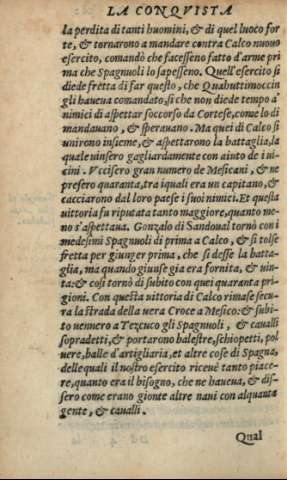 LA CONQVISTA
la perdita di tanti huomini, & di quel luoco for
te, & tornarono a mandare contra Calco nuouo
esercito, comandò che facessero fatto d'arme pri
ma che Spagnuoli lo sapessero. Quell'esercito si
diede fretta di far questo, che Quahuttimoccin
gli haueua comandato, si che non diede tempo a'
nimici di aspettar soccorso da Cortese, come lo di
mandauano, & sperauano. Ma quei di Calco si
unirono insieme, & aspettarono la battaglia, la
quale uinsero gagliardamente con aiuto de i ui-
cini. Vccisero gran numero de Mesicani, & ne
presero quaranta, tra iquali era un capitano, &
cacciarono dal loro paese i suoi nimici. Et questa
uittoria fu riputata tanto maggiore, quanto me-
no s'aspettaua. Gonzalo di Sandoual tornò con i
medesimi Spagnuoli di prima a Calco, & si tolse
fretta per giunger prima, che si desse la batta-
glia, ma quando giunse gia era fornita, & uin-
ta: & cosi tornò di subito con quei quaranta pri-
gioni. Con questa uittoria di Calco rimase secu-
ra la strada della uera Croce a Mesico: & subi-
to uennero a Tezcuco gli Spagnuoli, & caualli
sopradetti, & portarono balestre, schiopetti, pol
uere, balle d'artigliaria, et altre cose di Spagna,
delle quali il nostro esercito riceuè tanto piace-
re, quanto era il bisogno, che ne haueua, & dis-
sero come erano gionte altre naui con alquanta
gente, & caualli.
Qual